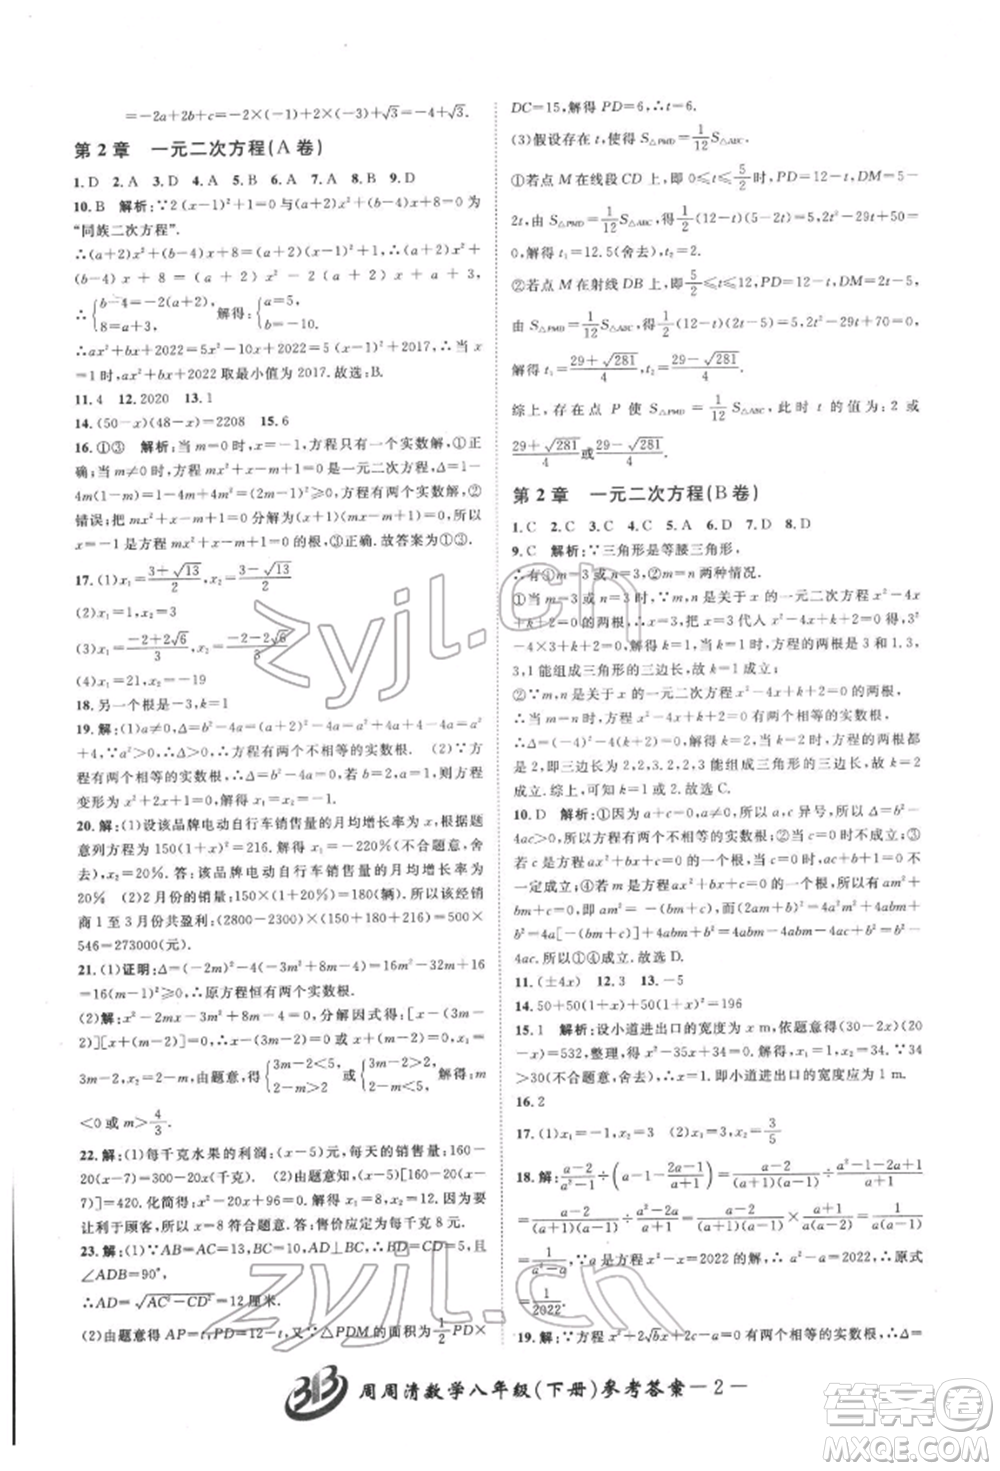 =-2a+2b+c=-2×(-1)+2×(-3)+√3=-4+√3.
第 2 章 一元二次方程(A 卷)
1. D 2. A 3. D 4. A 5. B 6. A 7. A 8. B 9. D
10. B 解析:∵2(x-1)²+1=0与(a+2)x²+(b-4)x+8=0为
“同族二次方程”.
∴(a+2)x²+(b-4)x+8=(a+2)(x-1)²+1,
∴(a+2)x²+(b-4)x+8=(a+2)x²-2(a+2)x+a+3,
∴{b-4=-2(a+2), 8=a+3, 解得:{a=5, b=-10.
∴ax²+bx+2022=5x²-10x+2022=5(x-1)²+2017,∴当 x
=1 时,ax²+bx+2022 取最小值为 2017.故选:B.
11. 4 12. 2020 13. 1
14. (50-x)(48-x)=2208 15. 6
16. ①③ 解析:当 m=0 时,x=-1,方程只有一个实数解,①正
确;当 m≠0 时,方程为一元二次方程,②
错误;把 mx²+x-m+1=0 分解为(x+1)(mx-m+1)=0,所以x
=-1 是方程 mx²+x-m+1=0 的根.故答案为①③.
17. (1)x₁=(3+√13)/2,x₂=(3-√13)/2
(2)x₁=3,x₂=-1
(3)x₁=(-2+2√6)/3,x₂=(-2-2√6)/3
(4)x₁=21,x₂=-19
18. 另一个根是-3,k=1
19. 解:(1)a≠0,Δ=b²-4a=(a+2)²-4a=a²+4a+4-4a=a²
+4,∵a²>0,∴Δ>0,∴方程有两个不相等的实数根. (2)∵方
程有两个相等的实数根,∴Δ=b²-4a=0,若 b=2,a=1,则方程
变形为 x²+2x+1=0,解得 x₁=x₂=-1.
20. 解:(1)设该品牌电动自行车销售量的月均增长率为 x,依题
意列方程为 150(1+x)²=216,解得 x₁=-220%(不合题意,舍
去),x₂=20%.答:该品牌电动自行车销售量的月均增长率为
20% (2)2 月份的销量:150×(1+20%)=180(辆).所以该经销
商 1 至 3 月份共盈利:(2800-2300)×(150+180+216)=500×
546=273000(元).
21. (1)证明:Δ=(-2m)²-4(-3m²+8m-4)=16m²-32m+16
=16(m-1)²≥0,∴原方程恒有两个实数根.
(2)解:x²-2mx-3m²+8m-4=0,分解因式得:[x-(3m-
2)][x-(2-m)]=0,∴x-(3m-2)=0 或 x-(2-m)=0,∴x=
3m-2,x=2-m,由题意,得{3m-2<5, 2-m>2 或{3m-2>2, 2-m<5, 解得:m
<0 或 m>4/3.
22. 解:(1)每千克水果的利润:(x-5)元,每天的销售量:160-
20(x-5)=260-20x(千克). (2)由题意可得(x-5)[160-20(x-
5)]=420.化简得:x²-18x²+20x+96=0,解得 x₁=8,x₂=12.因为要
让利于顾客,所以 x=8 符合题意.答:售价为每千克 8 元.
23. 解:(1)∵AB=AC=13,AD⊥BC,∴BD=CD=5,且
∠ADB=90°,
∴AD=√(AC²-CD²)=12厘米.
(2)由题意得 AP=t,PD=12-t,∵△PDM 的面积为1/2 PD×
DC=15,解得 PD=6,∴t=6.
(3)假设存在 t,使得 S△PMD=1/12 S△ABC.
①若点 M 在线段 CD 上,即 0≤t≤5/2 时,PD=12-t,DM=5-
2t,由 S△PMD=1/12 S△ABC,得 1/2(12-t)(5-2t)=5,2t²-29t+50=
0,解得 t₁=12.5(舍去),t₂=2.
②若点 M 在射线 DB 上,即 5/2≤t≤12 时,PD=12-t,DM=2t-5,
由 S△PMD=1/12 S△ABC,得 1/2(12-t)(2t-5)=5,2t²-29t+70=0,
解得 t₁=(29+√281)/4,t₂=(29-√281)/4.
综上,存在点 P 使 S△PMD=1/12 S△ABC,此时 t 的值为:2 或
(29+√281)/4或(29-√281)/4.
第 2 章 一元二次方程(B 卷)
1. C 2. C 3. C 4. C 5. A 6. D 7. D 8. D
9. C 解析:∵三角形是等腰三角形,
∴有①m=3或n=3,②m=n 两种情况.
①当 m=3 或 n=3 时,∵m,n 是关于 x 的一元二次方程 x²-4x
+k+2=0的两根,∴x=3,把 x=3 代入 x²-4x+k+2=0得,9
-4×3+k+2=0,解得:k=1,
3,1能组成三角形的三边长,故 k=1 成立;
②∵m,n 是关于 x 的一元二次方程 x²-4x+k+2=0 的两根,
∴Δ=(-4)²-4(k+2)=0,解得:k=2,
即三边分别为 2,2,3,2,2,3 能组成三角形的三边长,故 k=2
成立.综上,可知 k=1 或2.故选:C.
10. D 解析:①因为 a+c=0,a≠0,所以 a,c 异号,所以 Δ=b²-
4ac>0,所以方程有两个不相等的实数根;
11. (±4x) 12. 3 13. -5
14. 50+50(1+x)+50(1+x)²=196
15. 1 解析:设小道进出口的宽度为 x m,依题意得(30-2x)(20
-x)=532,整理,得 x²-35x+34=0.解得 x₁=1,x₂=34.∵34
>30(不合题意,舍去),∴x=1.即小道进出口的宽度应为1 m.
16. 2
17. (1)x₁=-1,x₂=3 (2)x₁=3,x₂=3/5
18. 解:(a-2)/(a²-1)÷(a-1-(2a-1)/(a+1))=(a-2)/((a+1)(a-1))÷(a²-1-2a+1)/(a+1)
=(a-2)/((a+1)(a-1))÷(a²-2a)/(a+1)=(a-2)/((a+1)(a-1))·(a+1)/(a(a-2))=1/(a(a-1))
=1/(a²-a).∵a是方程 x²-x=2022 的解,∴a²-a=2022,∴原式
=1/2022.
19. 解:∵方程 x²+2√b x+2c-a=0有两个相等的实数根,∴Δ=
周周清数学八年级(下册)参考答案-2-
zyjl.cn
zyjl.cn
答案圈
MXQE.COM